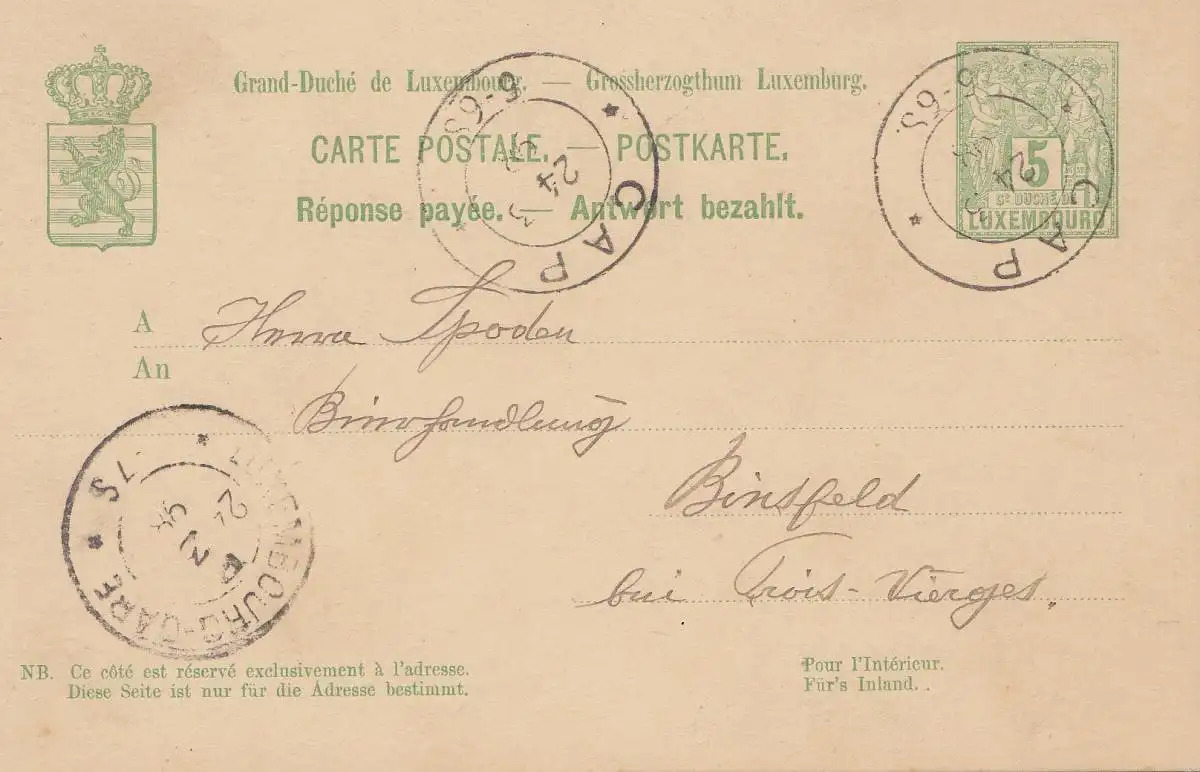 Grand-Duché de Luxembourg. — Grossherzogthum Luxemburg.
CARTE POSTALE. — POSTKARTE.
Réponse payée. — Antwort bezahlt.
5
Gd DUCHÉ DE
LUXEMBOURG
CAP
5-6S.
24 3
CAP
5-6S.
24 3
A
An
Herrn Spoden
Bierhandlung
Binsfeld
bei Trois-Vierges.
LUXEMBOURG-GARE
7S
NB. Ce côté est réservé exclusivement à l'adresse.
Diese Seite ist nur für die Adresse bestimmt.
Pour l'Intérieur.
Für's Inland.